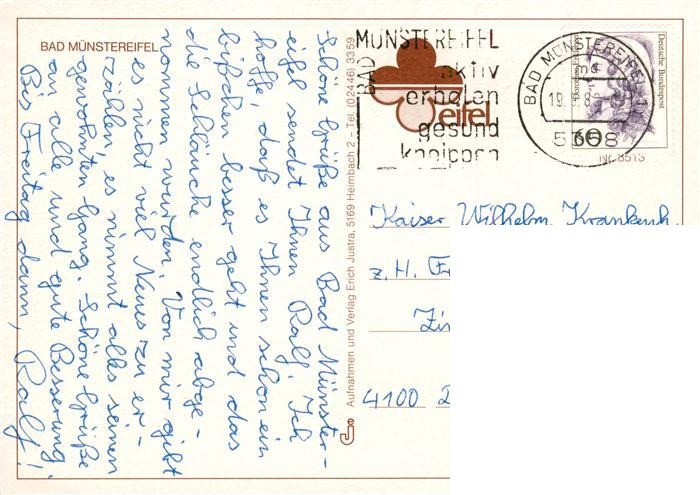 BAD MÜNSTEREIFEL
Schöne Grüße aus Bad Münster-
eifel sendet Ihnen Ralf. Ich
hoffe, daß es Ihnen schon ein
bißchen besser geht und das
die Schläuche endlich abge-
nommen wurden. Von mir gibt
es nicht viel Neues zu er-
zählen, es nimmt alles seinen
gewohnten Gang. Schöne Grüße
an alle und gute Besserung.
Bis Freitag dann, Ralf!
Aufnahmen und Verlag Erich Justra, 5169 Heimbach 2 - Tel. (02446) 3359
BAD
MÜNSTEREIFEL
aktiv
erholen
gesund
kneippen
eifel
BAD MÜNSTEREIFEL 1
5358
60
Deutsche Bundespost
Nr. 8513
Kaiser Wilhelm Krankenh.
z. H.
4100